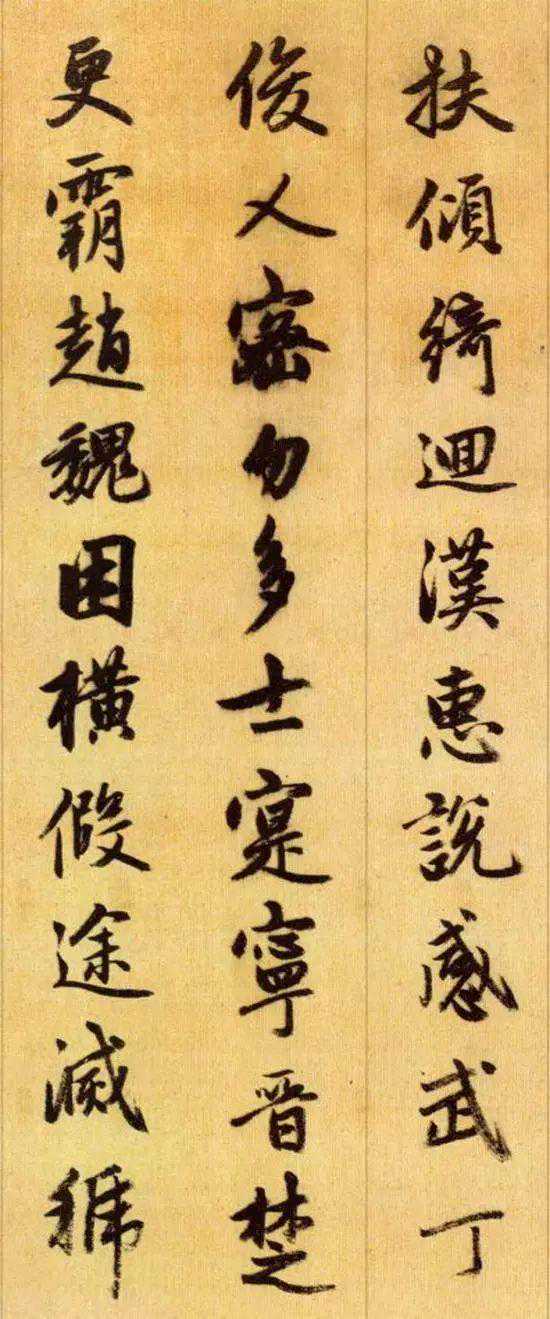 扶傾綺迴漢惠說感武丁
俊乂密勿多士寔寧晉楚
更霸趙魏困橫假途滅虢